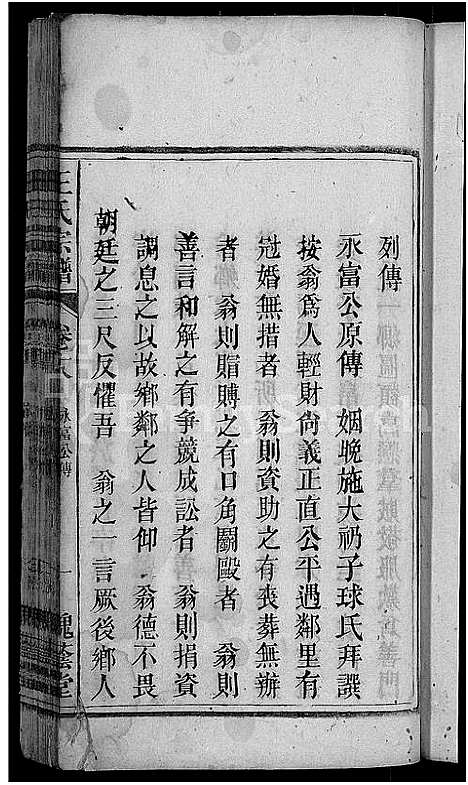 列傳
永富公原傳　姻晚施大礽子球氏拜譔
按翁爲人輕財尙義正直公平遇鄰里有
冠婚無措者　翁則資助之有喪葬無辦
者　翁則賻賻之有口角鬭毆者　翁則
善言和解之有爭競成訟者　翁則捐資
調息之以故鄉鄰之人皆仰　翁德不畏
朝廷之三尺反懼吾　翁之一言厥後鄉人
王氏宗譜　卷　永富公傳　一　槐蔭堂